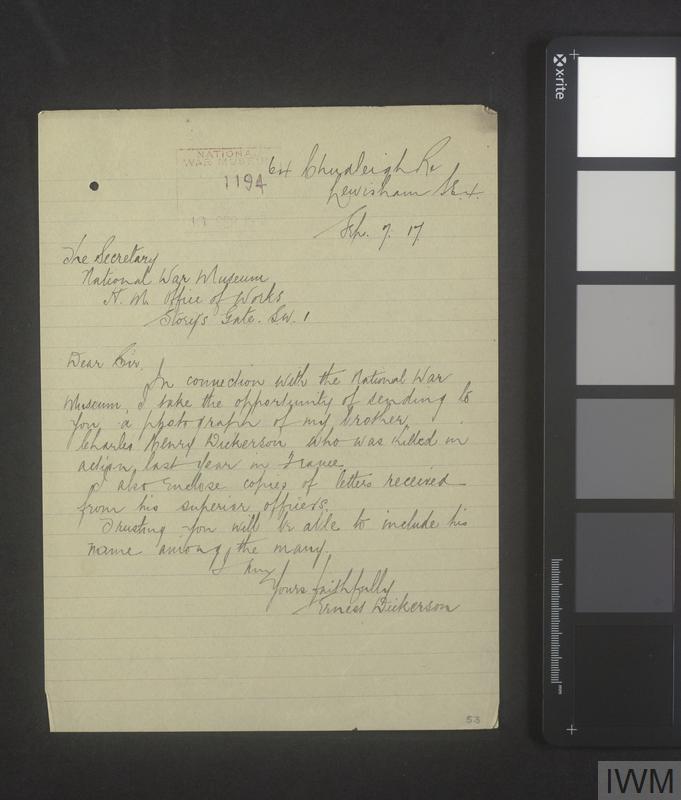 NATIONAL
WAR MUSEUM
1194
64 Chudleigh Rd
Lewisham S.E.4.
Sep. 7. 17
The Secretary
National War Museum
H. M. Office of Works
Storys Gate. S.W. 1
Dear Sir,
In connection with the National War
Museum, I take the opportunity of sending to
you a photograph of my brother,
Charles Henry Dickerson who was killed in
action last year in France.
I also enclose copies of letters received
from his superior officers.
Trusting you will be able to include his
name among the many,
I am,
Yours faithfully
Ernest Dickerson
53
x-rite
mm
IWM